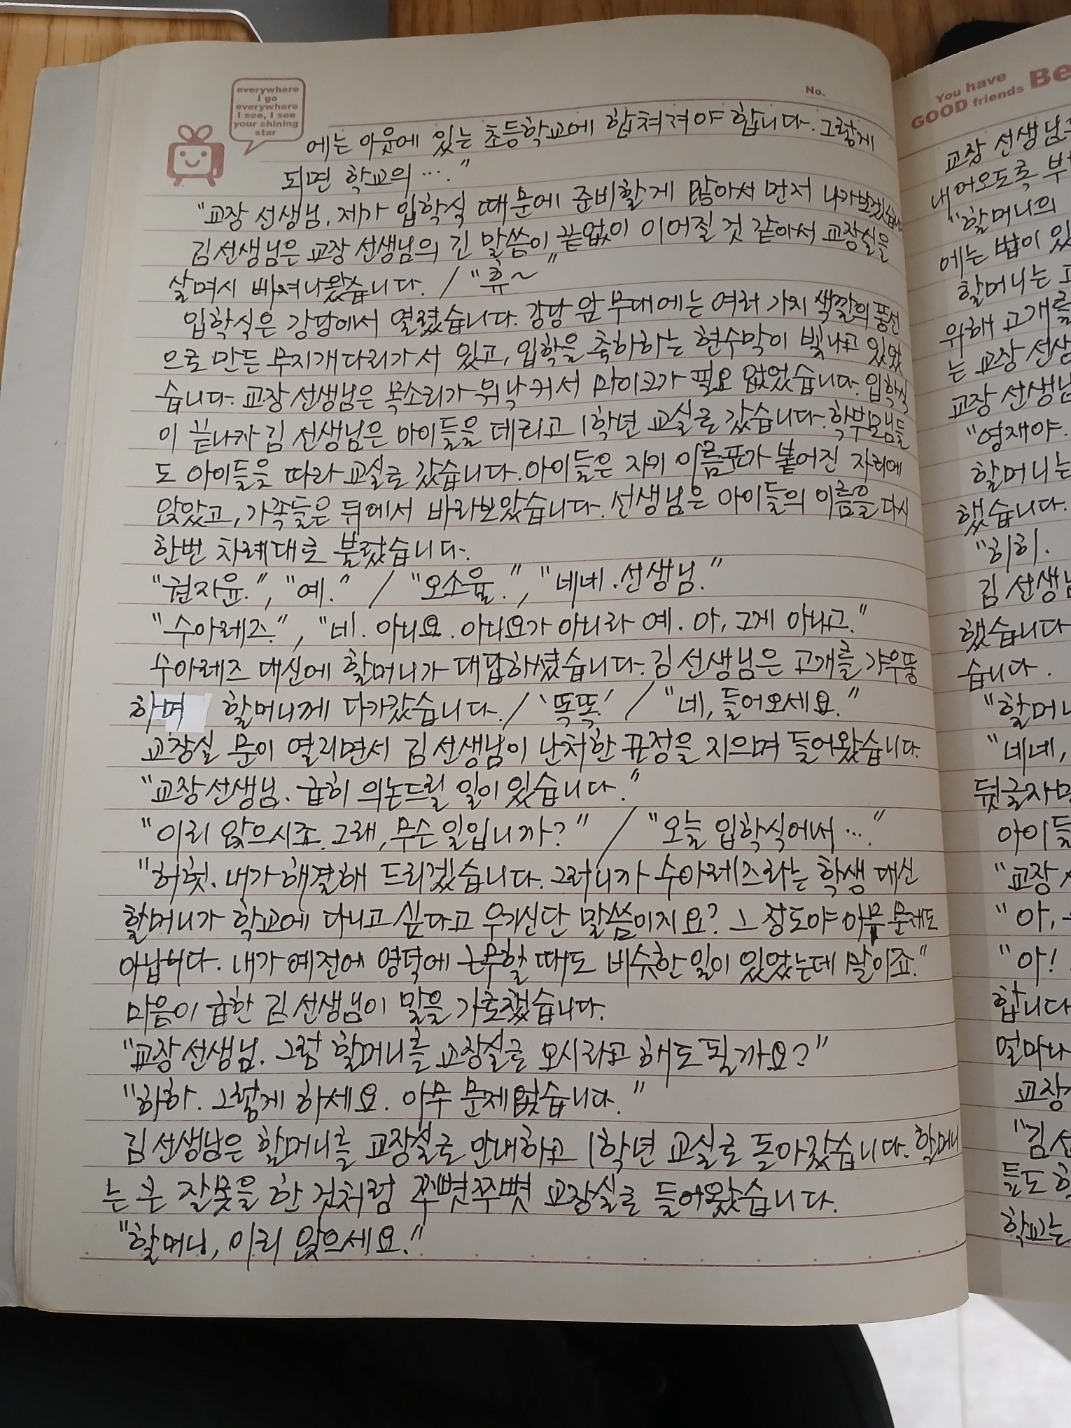 everywhere
I go
everywhere
I see, I see
your shining
star
No.
에는 이웃에 있는 초등학교에 합쳐져야 합니다. 그렇게
되면 학교의 …."
"교장 선생님, 제가 입학식 때문에 준비할게 많아서 먼저 나가보겠습니
김선생님은 교장 선생님의 긴 말씀이 끝없이 이어질 것 같아서 교장실을
살며시 빠져나왔습니다. / "휴~"
입학식은 강당에서 열렸습니다. 강당 앞 무대에는 여러 가지 색깔의 풍선
으로 만든 무지개다리가 서 있고, 입학을 축하하는 현수막이 빛나고 있었
습니다. 교장 선생님은 목소리가 워낙 커서 마이크가 필요 없었습니다. 입학식
이 끝나자 김 선생님은 아이들을 데리고 1학년 교실로 갔습니다. 학부모님들
도 아이들을 따라 교실로 갔습니다. 아이들은 자기 이름표가 붙어진 자리에
앉았고, 가족들은 뒤에서 바라보았습니다. 선생님은 아이들의 이름을 다시
한번 차례대로 불렀습니다.
"권지윤.", "예." / "오소율.", "네네. 선생님."
"수아레즈.", "네. 아니요. 아니요가 아니라 예. 아, 그게 아니고."
수아레즈 대신에 할머니가 대답하셨습니다. 김 선생님은 고개를 갸우뚱
하며 할머니께 다가갔습니다. / '똑똑' / "네, 들어오세요."
교장실 문이 열리면서 김 선생님이 난처한 표정을 지으며 들어왔습니다.
"교장 선생님. 급히 의논드릴 일이 있습니다."
"이리 앉으시죠. 그래, 무슨 일입니까?" / "오늘 입학식에서 …"
"허헛. 내가 해결해 드리겠습니다. 그러니까 수아레즈라는 학생 대신
할머니가 학교에 다니고 싶다고 우기신단 말씀이지요? 그 정도야 아무 문제도
아닙니다. 내가 예전에 영덕에 근무할 때도 비슷한 일이 있었는데 말이죠."
마음이 급한 김 선생님이 말을 가로챘습니다.
"교장 선생님. 그럼 할머니를 교장실로 모시라고 해도 될까요?"
"하하. 그렇게 하세요. 아무 문제없습니다."
김 선생님은 할머니를 교장실로 안내하고 1학년 교실로 돌아갔습니다. 할머니
는 큰 잘못을 한 것처럼 쭈뼛쭈뼛 교장실로 들어왔습니다.
"할머니, 이리 앉으세요."
You have
GOOD friends Be
교장 선생님
내어오도록 부
"할머니의
에는 법이 있
할머니는 교
위해 고개를
는 교장 선생
교장 선생님
"영재야.
할머니는
했습니다.
"히히.
김 선생님
했습니다
습니다.
"할머니
"네네,
뒷글자만
아이들
"교장
"아,
"아!
합니다
얼마나
교장
"김 선
들도 학
학교는